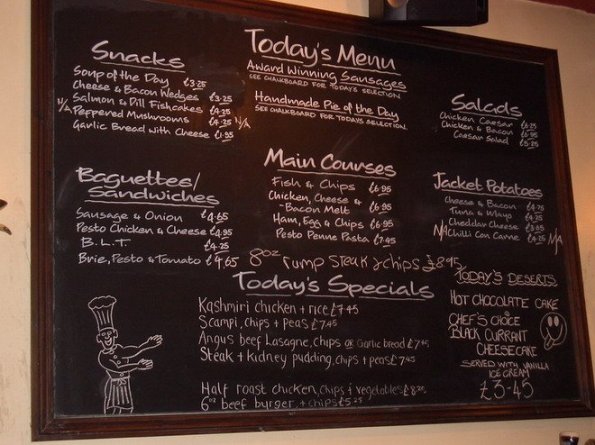 Today's Menu
Award Winning Sausages
SEE CHALKBOARD FOR TODAYS SELECTION
Handmade Pie of the Day
SEE CHALKBOARD FOR TODAYS SELECTION
Snacks
Soup of the Day £3.25
Cheese & Bacon Wedges £3.25
Salmon & Dill Fishcakes £4.25
N/A Peppered Mushrooms £4.25 N/A
Garlic Bread with Cheese £1.95
Salads
Chicken Caesar £6.25
Chicken & Bacon £6.95
Caesar Salad £5.25
Baguettes/
Sandwiches
Sausage & Onion £4.65
Pesto Chicken & Cheese £4.95
B.L.T. £4.25
Brie, Pesto & Tomato £4.65
Main Courses
Fish & Chips £6.95
Chicken, Cheese &
Bacon Melt £6.95
Ham, Egg & Chips £6.95
Pesto Penne Pasta £7.45
8oz rump steak & chips £8.95
Jacket Potatoes
Cheese & Bacon £4.75
Tuna & Mayo £4.25
Cheddar Cheese £3.85
N/A Chilli Con Carne £4.25 N/A
Today's Specials
Kashmiri chicken + rice £7.45
Scampi, chips + peas £7.45
Angus beef Lasagne, chips or Garlic bread £7.45
Steak + kidney pudding, chips + peas £7.45
Half roast chicken, chips + vegetables £8.20
6oz beef burger + chips £5.25
TODAY'S DESERTS
HOT CHOCOLATE CAKE
CHEF'S CHOICE
BLACK CURRANT
CHEESECAKE
SERVED WITH VANILLA
ICE CREAM
£3-45